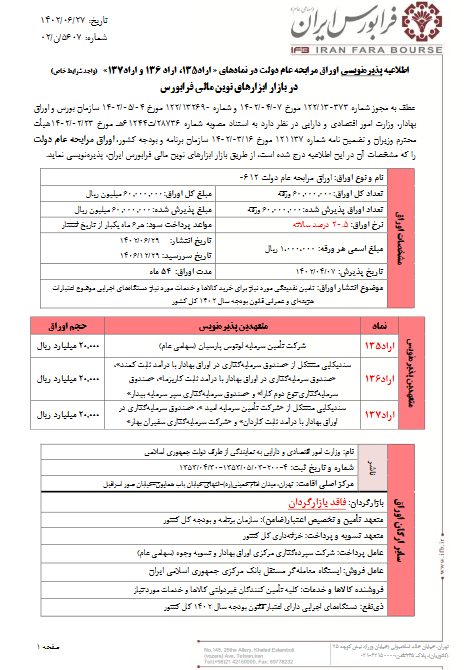 فرابورس ایران
(سهامی عام)
IFB IRAN FARA BOURSE
تاریخ: ۱۴۰۲/۰۶/۲۷
شماره: ۵۶۰۷/ن/۰۲
اطلاعیه پذیره‌نویسی اوراق مرابحه عام دولت در نمادهای «اراد۱۳۵، اراد ۱۳۶ و اراد۱۳۷» (واجد شرایط خاص)
در بازار ابزارهای نوین مالی فرابورس
عطف به مجوز شماره ۱۲۲/۱۳۰۳۷۳ مورخ ۱۴۰۲/۰۴/۰۷ و شماره ۱۲۲/۱۳۲۶۹۰ مورخ ۱۴۰۲/۰۵/۰۴ سازمان بورس و اوراق
بهادار، وزارت امور اقتصادی و دارایی در نظر دارد به استناد مصوبه شماره ۲۸۷۳۶/ت۶۱۲۴۴هـ مورخ ۱۴۰۲/۰۲/۲۳ هیأت
محترم وزیران و تضمین نامه شماره ۱۲۱۱۳۷ مورخ ۱۴۰۲/۰۳/۱۶ سازمان برنامه و بودجه کشور، اوراق مرابحه عام دولت
را که مشخصات آن در این اطلاعیه درج شده است، از طریق بازار ابزارهای نوین مالی فرابورس ایران، پذیره‌نویسی نماید.
مشخصات اوراق
نام و نوع اوراق: اوراق مرابحه عام دولت ۶۱۲-
تعداد کل اوراق: ۶۰,۰۰۰,۰۰۰ ورقه
مبلغ کل اوراق: ۶۰,۰۰۰,۰۰۰ میلیون ریال
تعداد اوراق پذیرش شده: ۶۰,۰۰۰,۰۰۰ ورقه
مبلغ پذیرش شده: ۶۰,۰۰۰,۰۰۰ میلیون ریال
نرخ اوراق: ۲۰.۵ درصد سالانه
مواعد پرداخت سود: هر ۶ ماه یکبار از تاریخ انتشار
مبلغ اسمی هر ورقه: ۱,۰۰۰,۰۰۰ ریال
تاریخ انتشار: ۱۴۰۲/۰۶/۲۹
تاریخ سررسید: ۱۴۰۶/۱۲/۲۹
تاریخ پذیرش: ۱۴۰۲/۰۴/۰۷
مدت اوراق: ۵۴ ماه
موضوع انتشار اوراق: تامین نقدینگی مورد نیاز برای خرید کالاها و خدمات مورد نیاز دستگاه‌های اجرایی موضوع اعتبارات
هزینه‌ای و عمرانی قانون بودجه سال ۱۴۰۲ کل کشور
متعهدین پذیره نویس
نماد متعهدین پذیره‌نویس حجم اوراق
اراد۱۳۵ شرکت تأمین سرمایه لوتوس پارسیان (سهامی عام) ۲۰,۰۰۰ میلیارد ریال
سندیکایی متشکل از «صندوق سرمایه‌گذاری در اوراق بهادار با درآمد ثابت کمند»،
«صندوق سرمایه‌گذاری در اوراق بهادار با درآمد ثابت کاریزما»، «صندوق
سرمایه‌گذاری نوع دوم کارا» و «صندوق سرمایه‌گذاری سپر سرمایه بیدار»
اراد۱۳۶ ۲۰,۰۰۰ میلیارد ریال
سندیکایی متشکل از «شرکت تأمین سرمایه امید »، «صندوق سرمایه‌گذاری در
اوراق بهادار با درآمد ثابت کاردان» و «شرکت سرمایه‌گذاری سفیران بهار»
اراد۱۳۷ ۲۰,۰۰۰ میلیارد ریال
سایر ارکان اوراق
ناشر
نام: وزارت امور اقتصادی و دارایی به نمایندگی از طرف دولت جمهوری اسلامی
شماره و تاریخ ثبت: ۲۰۰۰۴-۱۳۵۳/۰۵/۰۳-۱۳۵۳/۰۴/۳۰
مرکز اصلی اقامت: تهران، میدان امام خمینی(ره)-انتهای خیابان باب همایون-خیابان صور اسرافیل
بازارگردان: فاقد بازارگردان
متعهد تأمین و تخصیص اعتبار(ضامن): سازمان برنامه و بودجه کل کشور
متعهد تسویه و پرداخت: خزانه‌داری کل کشور
عامل پرداخت: شرکت سپرده‌گذاری مرکزی اوراق بهادار و تسویه وجوه (سهامی عام)
عامل فروش: ایستگاه معامله‌گر مستقل بانک مرکزی جمهوری اسلامی ایران
فروشنده کالاها و خدمات: کلیه تأمین کنندگان غیردولتی کالاها و خدمات مورد نیاز
ذی‌نفع: دستگاه‌های اجرایی دارای اعتبار قانون بودجه سال ۱۴۰۲ کل کشور
www.ifb.ir
صفحه ۱
No.148, 25the Alley, Khaled Eslamboli
(Vozara) Ave. Tehran,Iran